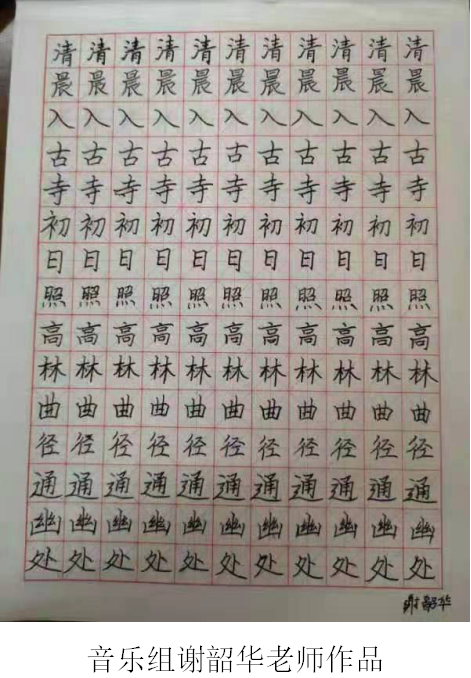 清清清清清清清清清清清
晨晨晨晨晨晨晨晨晨晨晨
入入入入入入入入入入入
古古古古古古古古古古古
寺寺寺寺寺寺寺寺寺寺寺
初初初初初初初初初初初
日日日日日日日日日日日
照照照照照照照照照照照
高高高高高高高高高高高
林林林林林林林林林林林
曲曲曲曲曲曲曲曲曲曲曲
径径径径径径径径径径径
通通通通通通通通通通通
幽幽幽幽幽幽幽幽幽幽幽
处处处处处处处处处处处
谢韶华
音乐组谢韶华老师作品